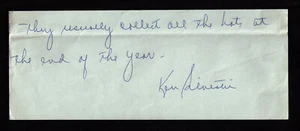 They usually collect all the hats at
the end of the year.
Ken Silvestri